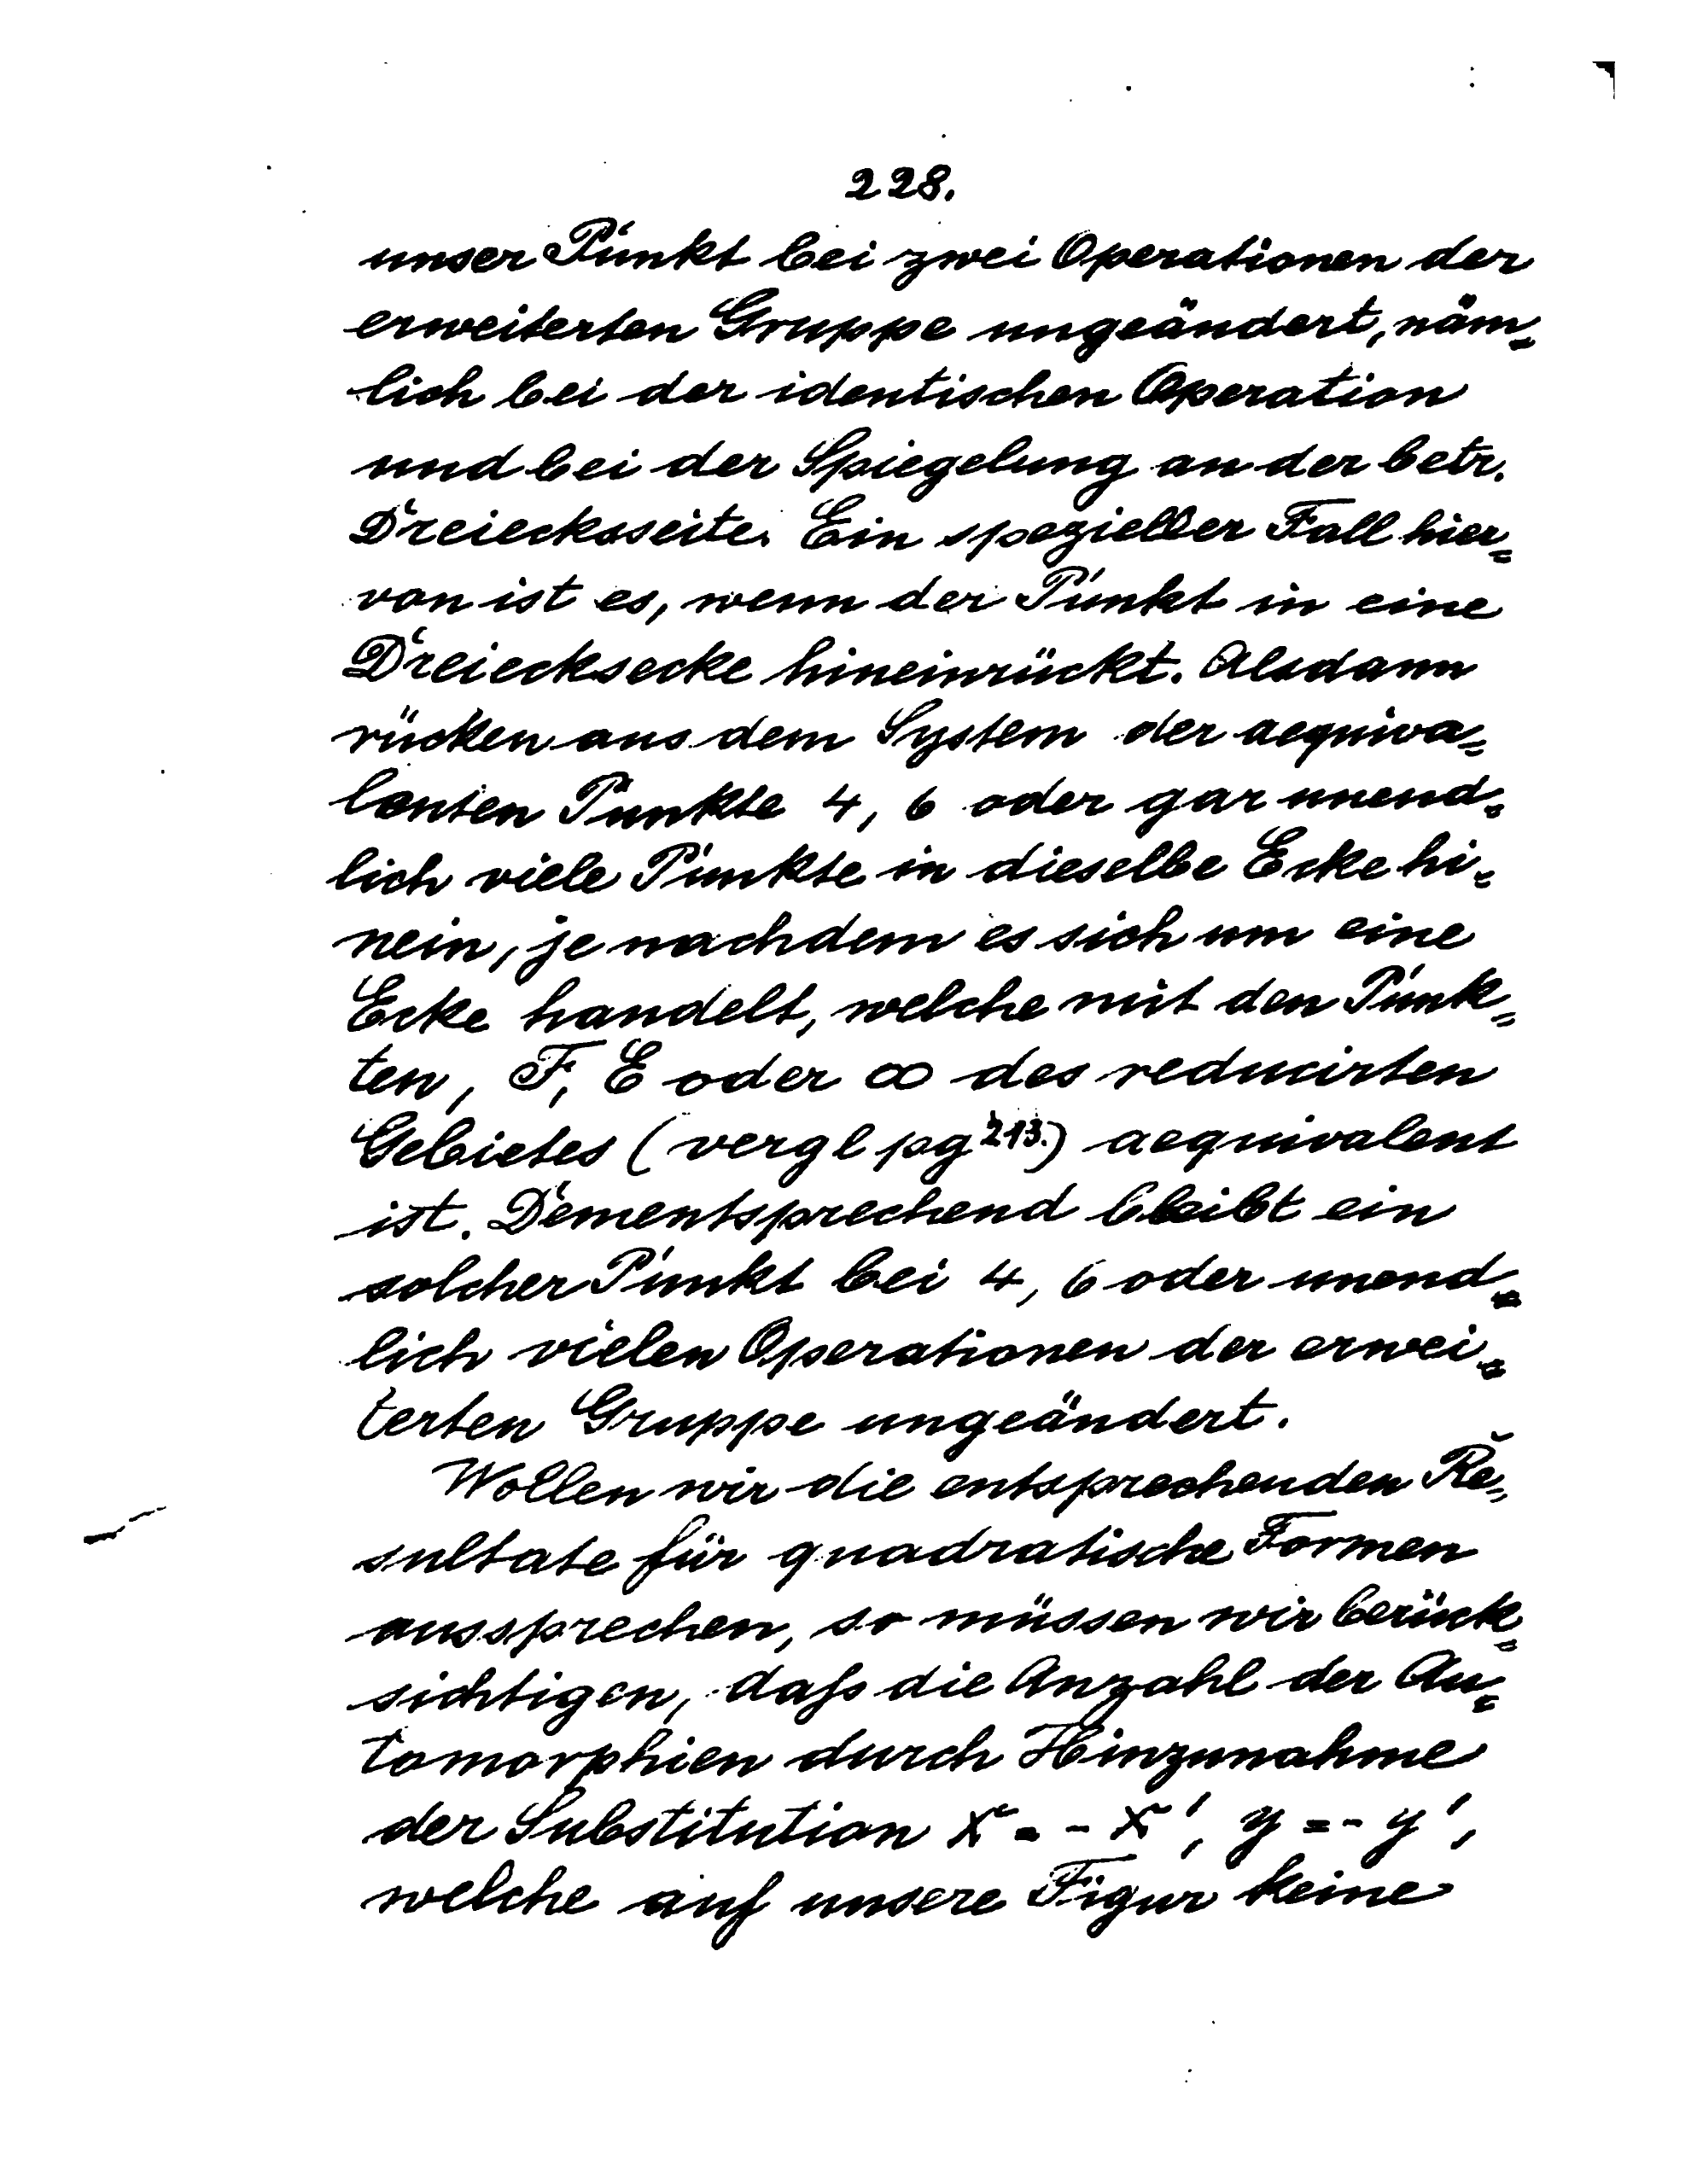 228.
unser Punkt bei zwei Operationen der
erweiterten Gruppe ungeändert, näm=
lich bei der identischen Operation
und bei der Spiegelung an der betr.
Dreiecksseite. Ein spezieller Fall hier=
von ist es, wenn der Punkt in eine
Dreiecksecke hineinrückt. Alsdann
rücken aus dem System der aequiva=
lenten Punkte 4, 6 oder gar unend=
lich viele Punkte in dieselbe Ecke hi=
nein, je nachdem es sich um eine
Ecke handelt, welche mit den Punk=
ten, F, E oder ∞ des reducirten
Gebietes (vergl pg 213.) aequivalent
ist. Dementsprechend bleibt ein
solcher Punkt bei 4, 6 oder unend=
lich vielen Operationen der erwei=
terten Gruppe ungeändert.
Wollen wir die entsprechenden Re=
sultate für quadratische Formen
aussprechen, so müssen wir berück=
sichtigen, daß die Anzahl der Au=
tomorphien durch Hinzunahme
der Substitution x = - x', y = - y',
welche auf unsere Figur keine